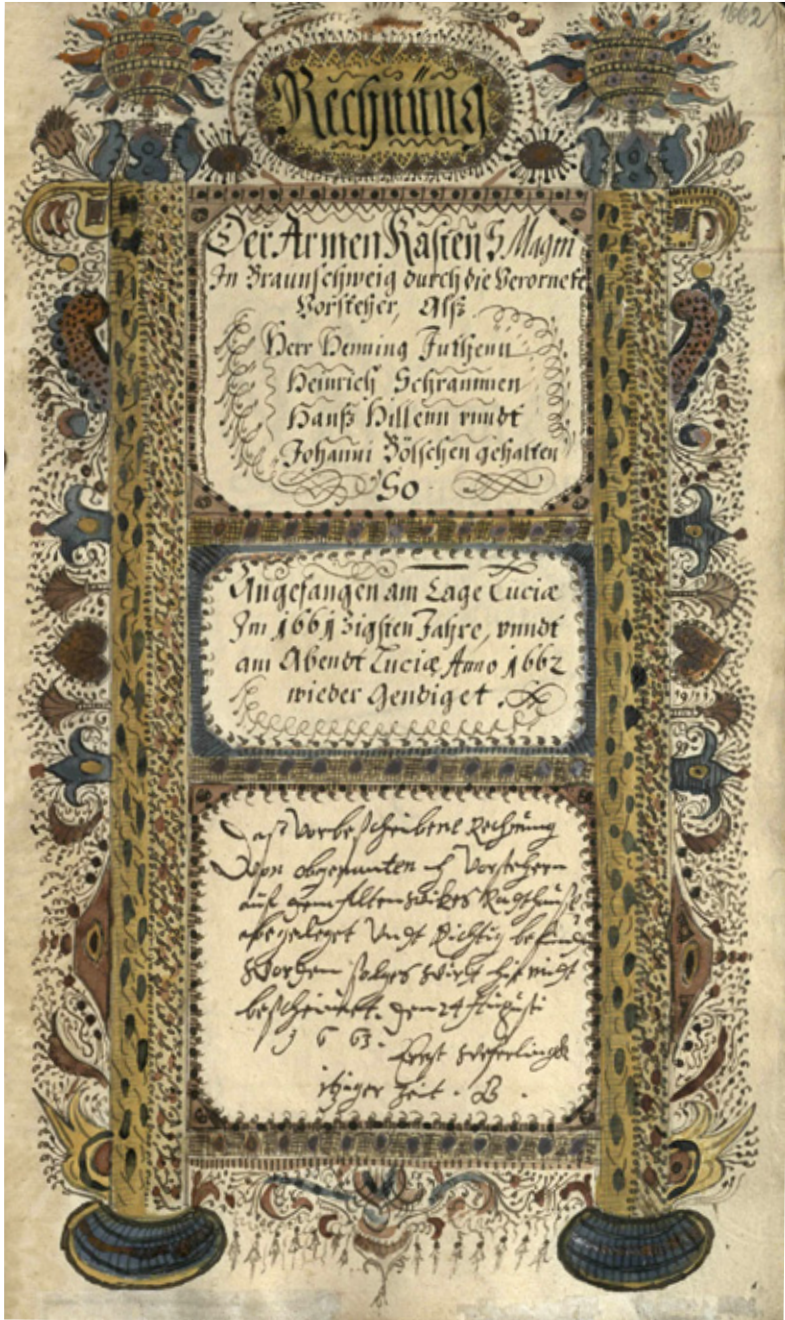 1662
Rechnüng
Der Armen Kasten S Magni
In Braunschweig durch die Verornete
Vorsteher, Alß
Herr Henning Juthenn
Heinrich Schrammen
Hanß Hillenn vnndt
Johanni Bölschen gehalten
So
Angefangen am Tage Luciæ
Im 1661 zigsten Jahre, vnndt
am Abendt Luciæ Anno 1662
wieder Gendiget.
Daß Vorbeschribene Rechnung
Von obgenanten H Vorstehern
auf dem Altenwikes Radthuse
abgeleget Undt Richtig befunden
Worden solches wirt hie mitt
bescheinet. den 24 Augusti
1663.
itziger Zeit. B.